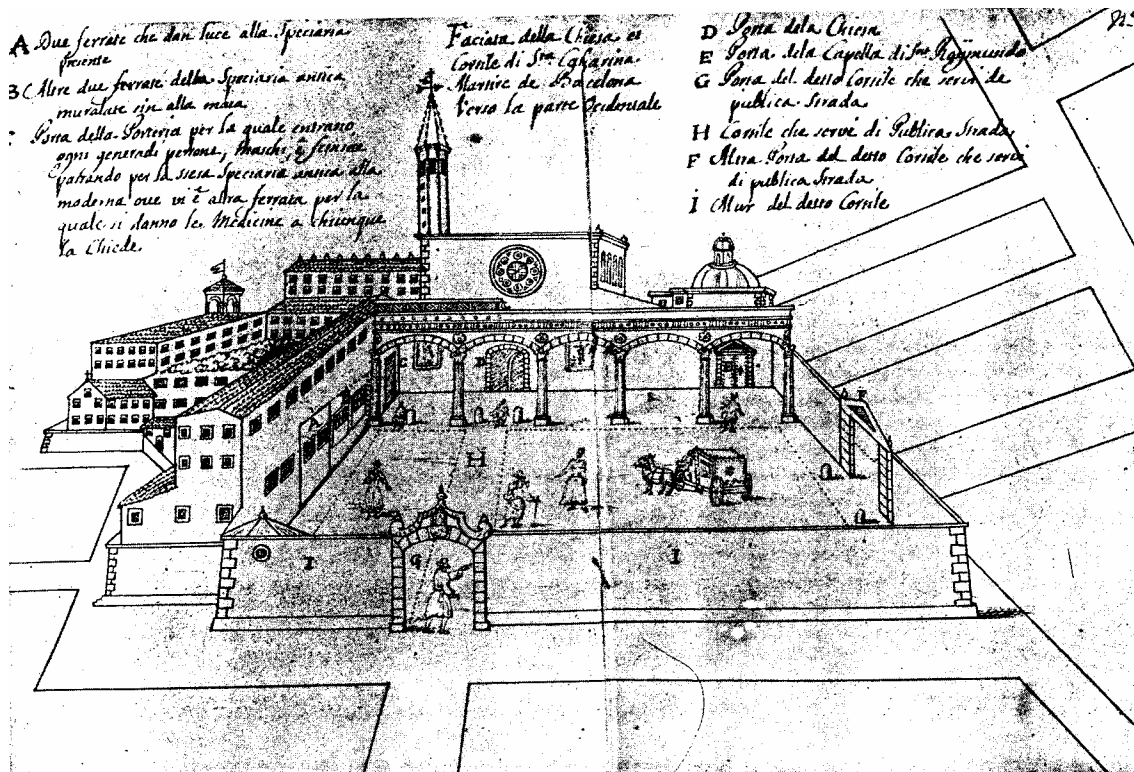 A Due ferrate che dan luce alla Speciaria
presente
B C Altre due ferrate della Speciaria antica
murate sin alla
Porta della Porteria per la quale entrano
ogni genera di persone, maschi, e femine
passando per la stessa Speciaria antica alla
moderna ove vi è altra ferrata per la
quale si danno le Medicine a chiunque
la Chiede
Faciata della Chiesa et
Cortile di Sta Catharina
Martire de Barcelona
Verso la parte Ocidentale
D Porta dela Chiesa
E Porta dela Capella di Sto Raymundo
G Porta del detto Cortile che servi de
publica strada
H Cortile che serve di Publica strada
F Altra Porta del detto Cortile che servi
di publica strada
I Mur del detto Cortile
A
D
E
F
H
I
G
I